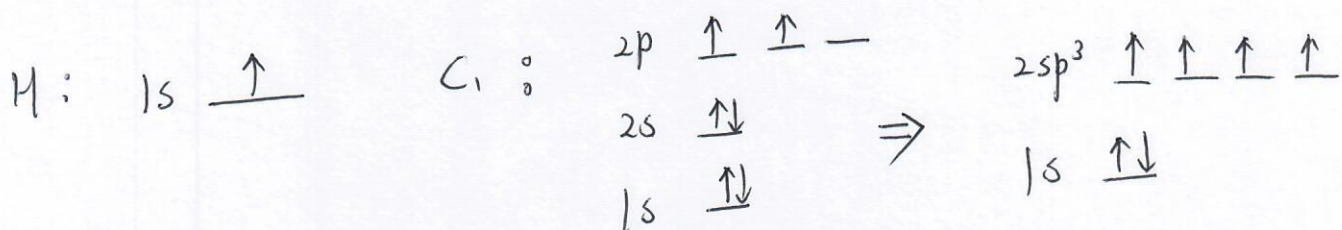 H: 1s ↑
C₁: 2p ↑ ↑ _
2s ↑↓
1s ↑↓
⇒
2sp³ ↑ ↑ ↑ ↑
1s ↑↓